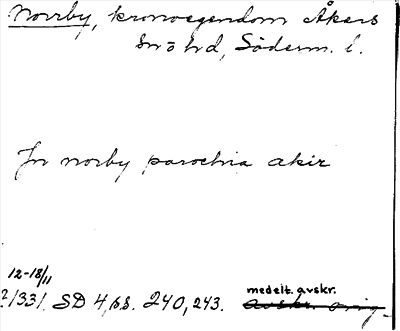 Norrby, kronoegendom Åkers
sn o hd, Söderm. l.
Jn norby parochia akir
12-18/11
1331. SD 4, ss. 240, 243.
medelt. avskr.
avskr. orig.